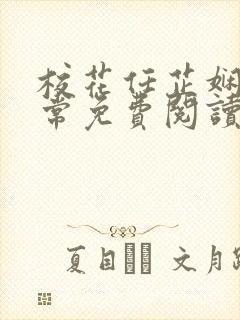 校花任芷娴
常免費閱讀
夏目 文月